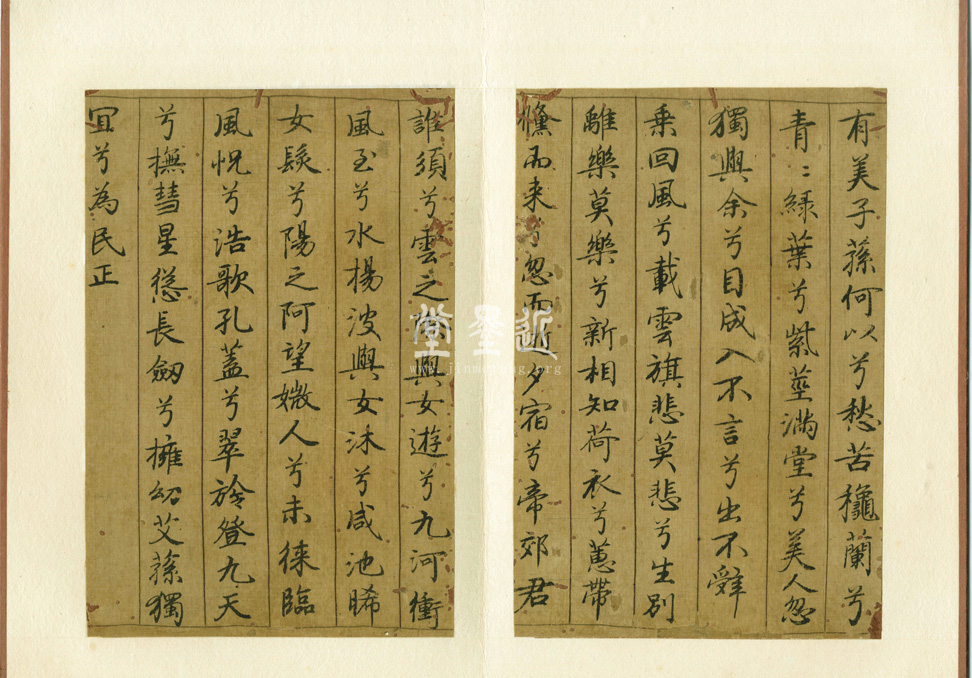 有美子蓀何以兮愁苦龝蘭兮
青〻綠葉兮紫莖滿堂兮美人忽
獨與余兮目成入不言兮出不辭
乘回風兮載雲旗悲莫悲兮生別
離樂莫樂兮新相知荷衣兮蕙帶
儵而来兮忽而逝夕宿兮帝郊君
誰須兮雲之際與女遊兮九河衝
風至兮水楊波與女沐兮咸池晞
女髮兮陽之阿望媺人兮未徠臨
風怳兮浩歌孔蓋兮翠旍登九天
兮撫彗星慫長劒兮擁幼艾蓀獨
宜兮為民正
近墨堂
www.jinmotang.org